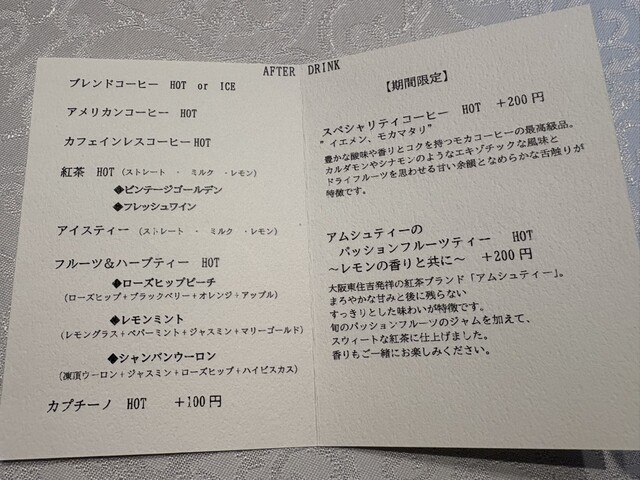 AFTER DRINK
ブレンドコーヒー HOT or ICE
アメリカンコーヒー HOT
カフェインレスコーヒーHOT
紅茶 HOT (ストレート ・ ミルク ・レモン)
◆ビンテージゴールデン
◆フレッシュワイン
アイスティー (ストレート ・ ミルク ・レモン)
フルーツ&ハーブティー HOT
◆ローズヒップピーチ
(ローズヒップ+ブラックベリー+オレンジ+アップル)
◆レモンミント
(レモングラス+ペパーミント+ジャスミン+マリーゴールド)
◆シャンパンウーロン
(凍頂ウーロン+ジャスミン+ローズヒップ+ハイビスカス)
カプチーノ HOT +100円
【期間限定】
スペシャリティコーヒー HOT +200円
"イエメン、モカマタリ"
豊かな酸味や香りとコクを持つモカコーヒーの最高級品。
カルダモンやシナモンのようなエキゾチックな風味と
ドライフルーツを思わせる甘い余韻となめらかな舌触りが
特徴です。
アムシュティーの
パッションフルーツティー HOT
～レモンの香りと共に～ +200円
大阪東住吉発祥の紅茶ブランド「アムシュティー」。
まろやかな甘みと後に残らない
すっきりとした味わいが特徴です。
旬のパッションフルーツのジャムを加えて、
スウィートな紅茶に仕上げました。
香りもご一緒にお楽しみください。